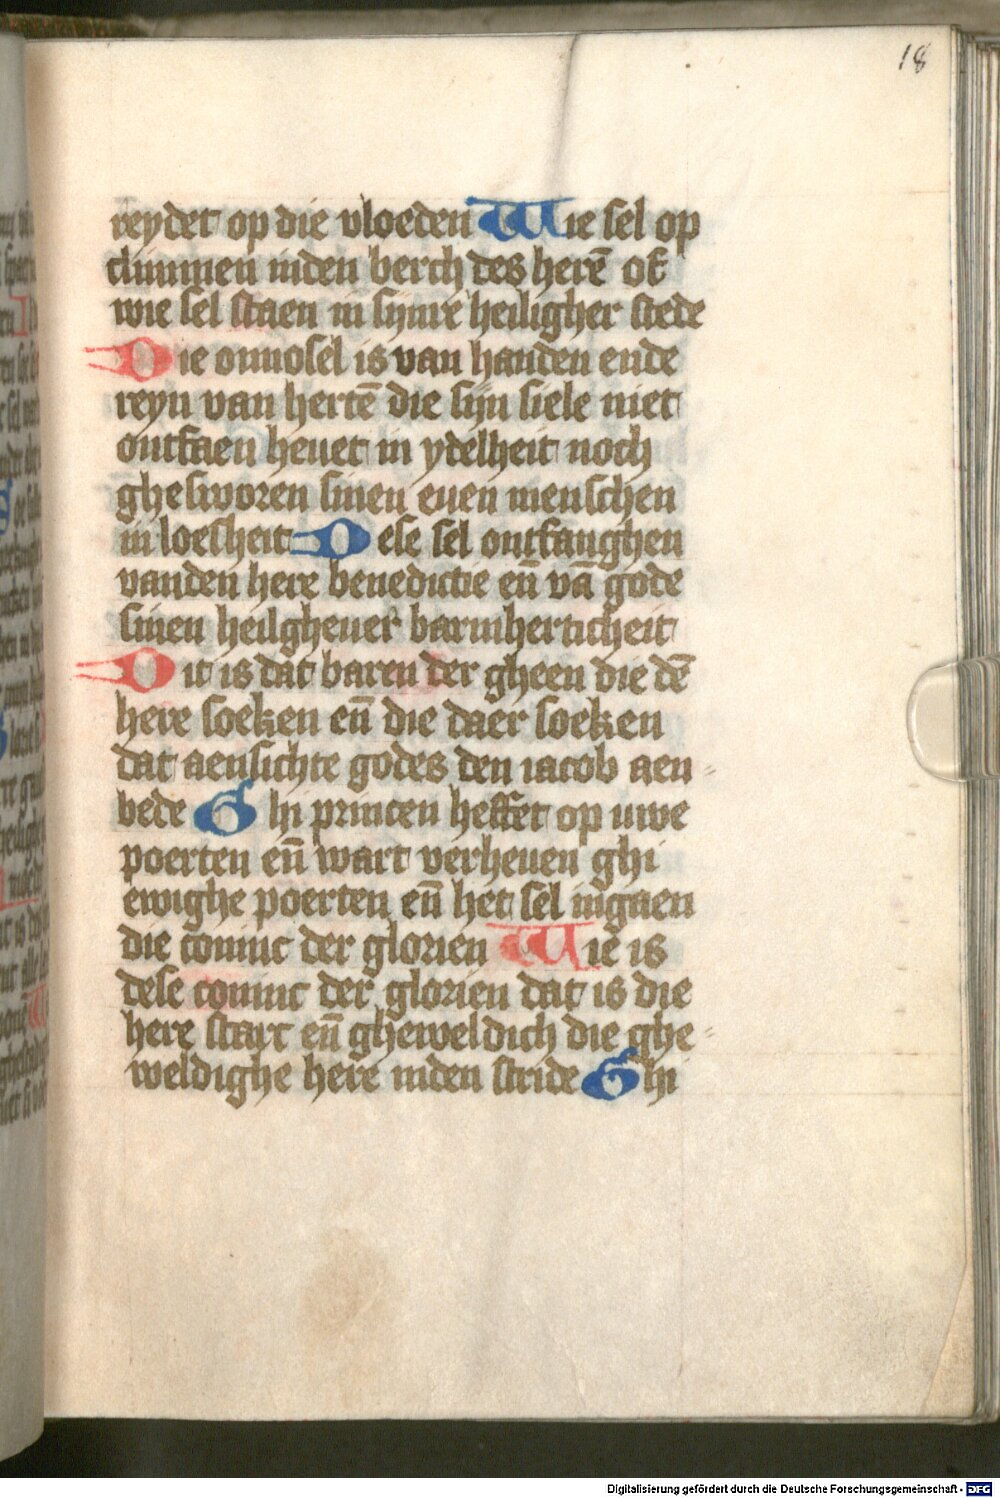 18
reydet op die vloeden Wie sel op
clim̄men inden berch des herē of
wie sel staen in sijnre heiligher stede
Die onnosel is van handen ende
reyn van hertē die sijn siele niet
ontfaen heuet in ydelheit noch
ghesworen sinen euen menschen
in loesheit Dese sel ontfanghen
vanden here benedictie eñ vā gode
sinen heilgheuer barmherticheit
Dit is dat baren der gheen die dē
here soeken eñ die daer soeken
dat aensichte godes den iacob aen
bede Ghi princen heffet op uwe
poerten eñ wart verheuen ghi
ewighe poerten eñ het sel ingaen
die coninc der glorien Wie is
dese coninc der glorien dat is die
here starc eñ gheweldich die ghe
weldighe here inden stride Ghi
Digitalisierung gefördert durch die Deutsche Forschungsgemeinschaft - DFG